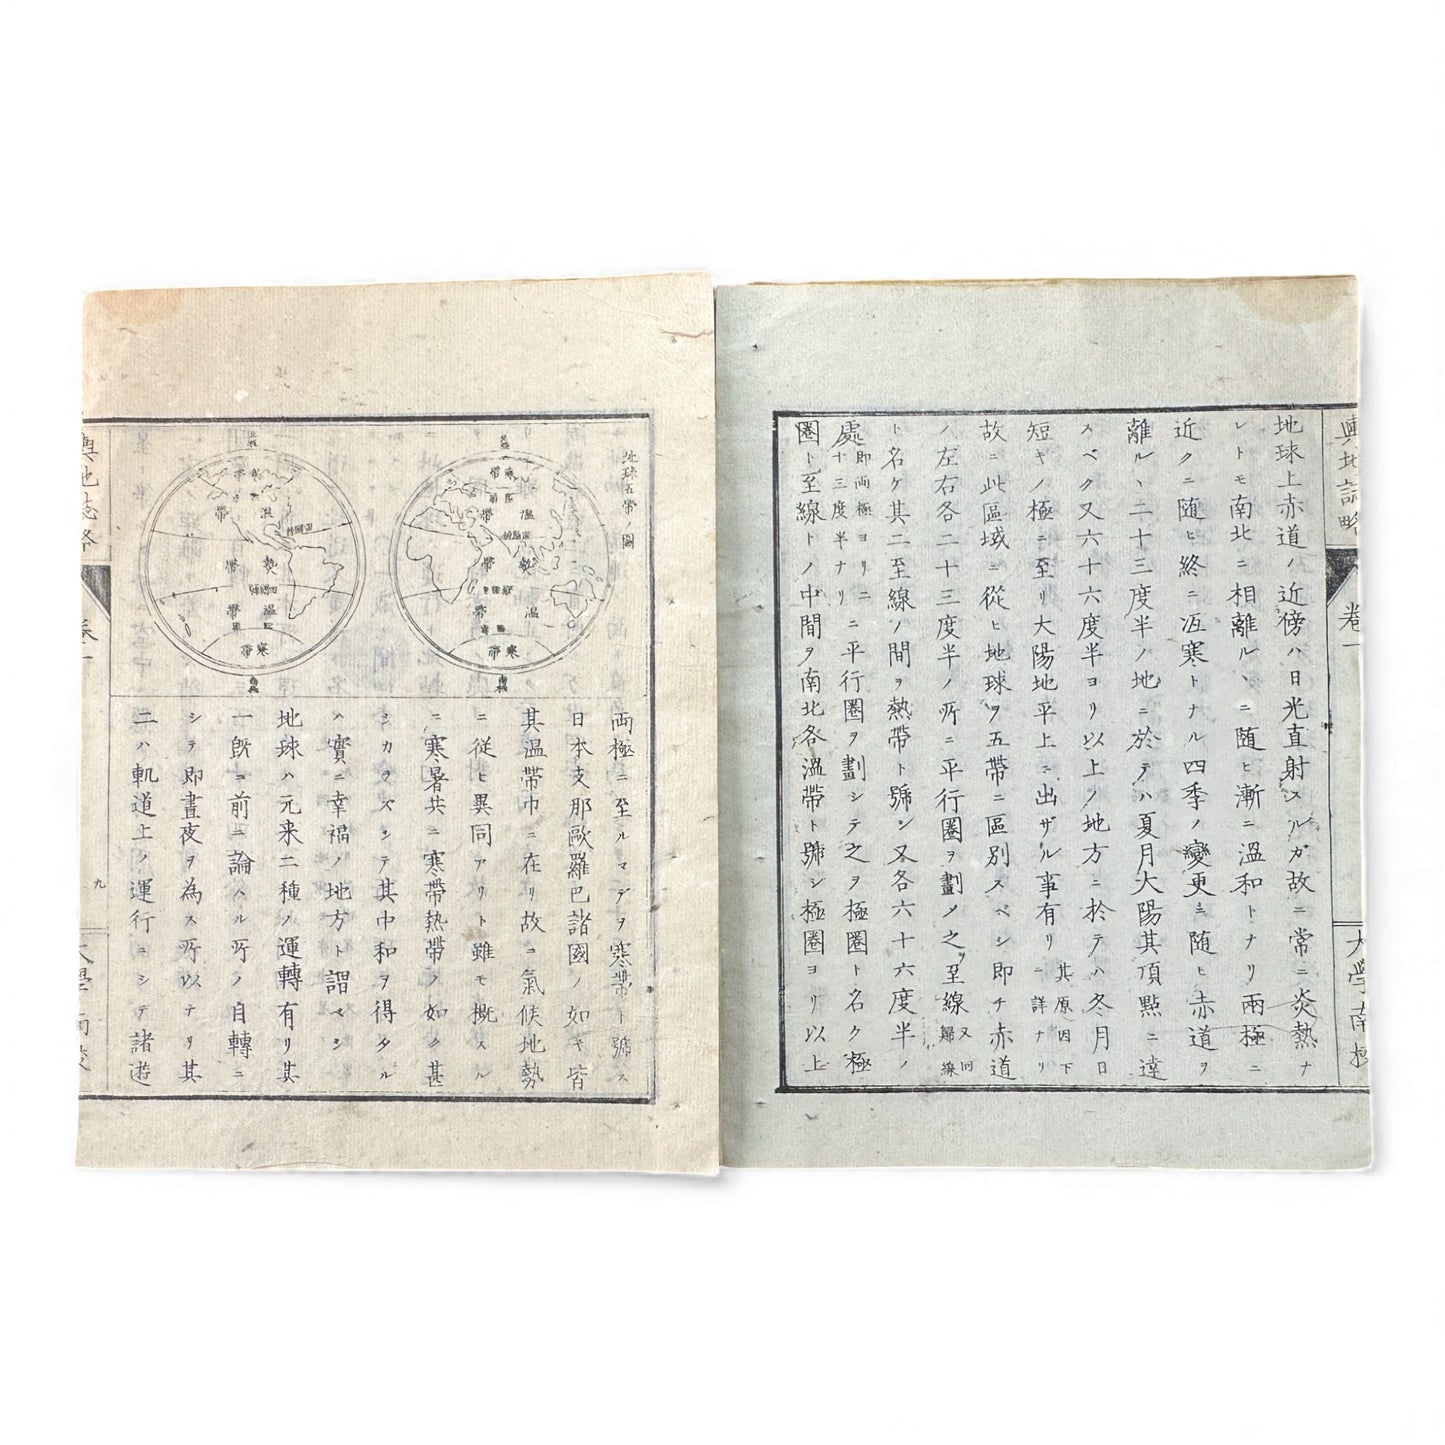 輿地誌略
卷一
大學南校
地球上赤道ノ近傍ハ日光直射スルガ故ニ常ニ炎熱ナ
レトモ南北ニ相離ルヽニ随ヒ漸ニ温和トナリ兩極ニ
近クニ随ヒ終ニ冱寒トナル四季ノ變更ニ随ヒ赤道ヲ
離ルヽ二十三度半ノ地ニ於テハ夏月大陽其頂點ニ達
スベク又六十六度半ヨリ以上ノ地方ニ於テハ冬月日
短キノ極ニ至リ大陽地平上ニ出ザル事有リ其原因下ニ詳ナリ
故ニ此區域ニ從ヒ地球ヲ五帶ニ區別スベシ即チ赤道
ノ左右各二十三度半ノ所ニ平行圏ヲ劃シ之ヲ至線又回歸線
ト名ケ其二至線ノ間ヲ熱帶ト號シ又各六十六度半ノ
處即両極ヨリ二十三度半ナリニ平行圏ヲ劃シテ之ヲ極圏ト名ク極
圏ト至線トノ中間ヲ南北各温帶ト號シ極圏ヨリ以上
地球五帶ノ圖
北極
寒帶
温帶
熱帶
温帶
寒帶
南極
北極
寒帶
温帶
熱帶
温帶
寒帶
南極
両極ニ至ルマデヲ寒帶ト號ス
日本支那歐羅巴諸國ノ如キ皆
其温帶中ニ在リ故ニ氣候地勢
ニ従ヒ異同アリト雖モ概スル
ニ寒暑共ニ寒帶熱帶ノ如ク甚
シカラズシテ其中和ヲ得タル
ハ實ニ幸福ノ地方ト謂ベシ
地球ハ元来二種ノ運轉有リ其
一既ニ前ニ論ハル所ノ自轉ニ
シテ即晝夜ヲ為ス所以テリ其
二ハ軌道上ノ運行ニシテ諸遊
輿地誌略
卷一
九
大學南校